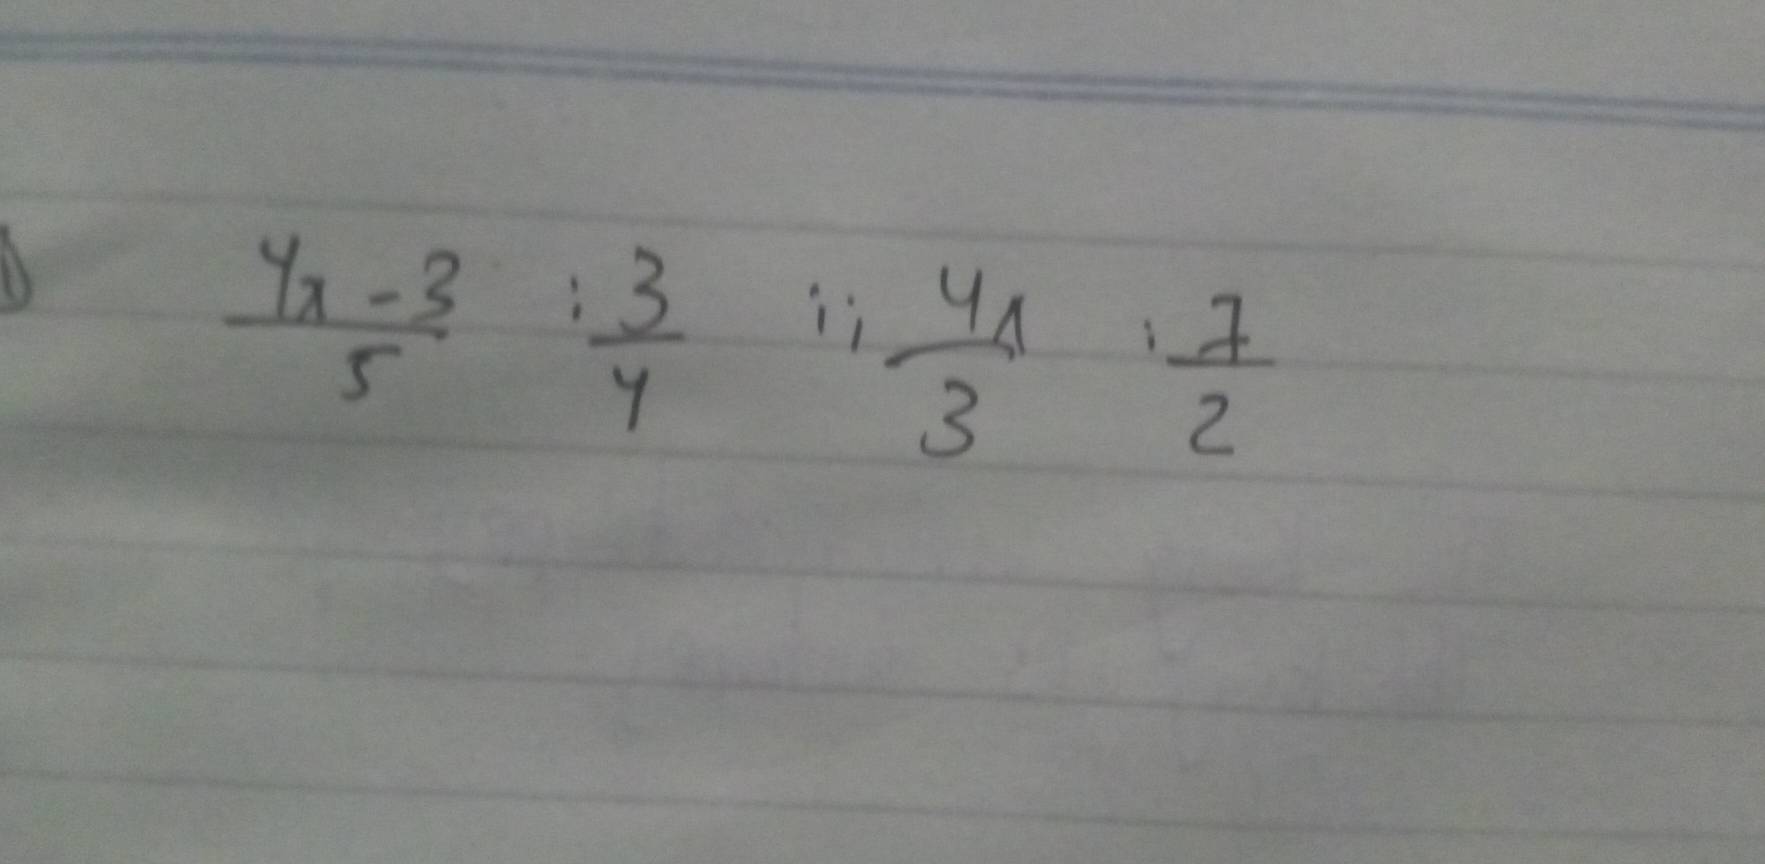 1) (4x - 3)/5 : 3/4 :: 4x/3 : 7/2